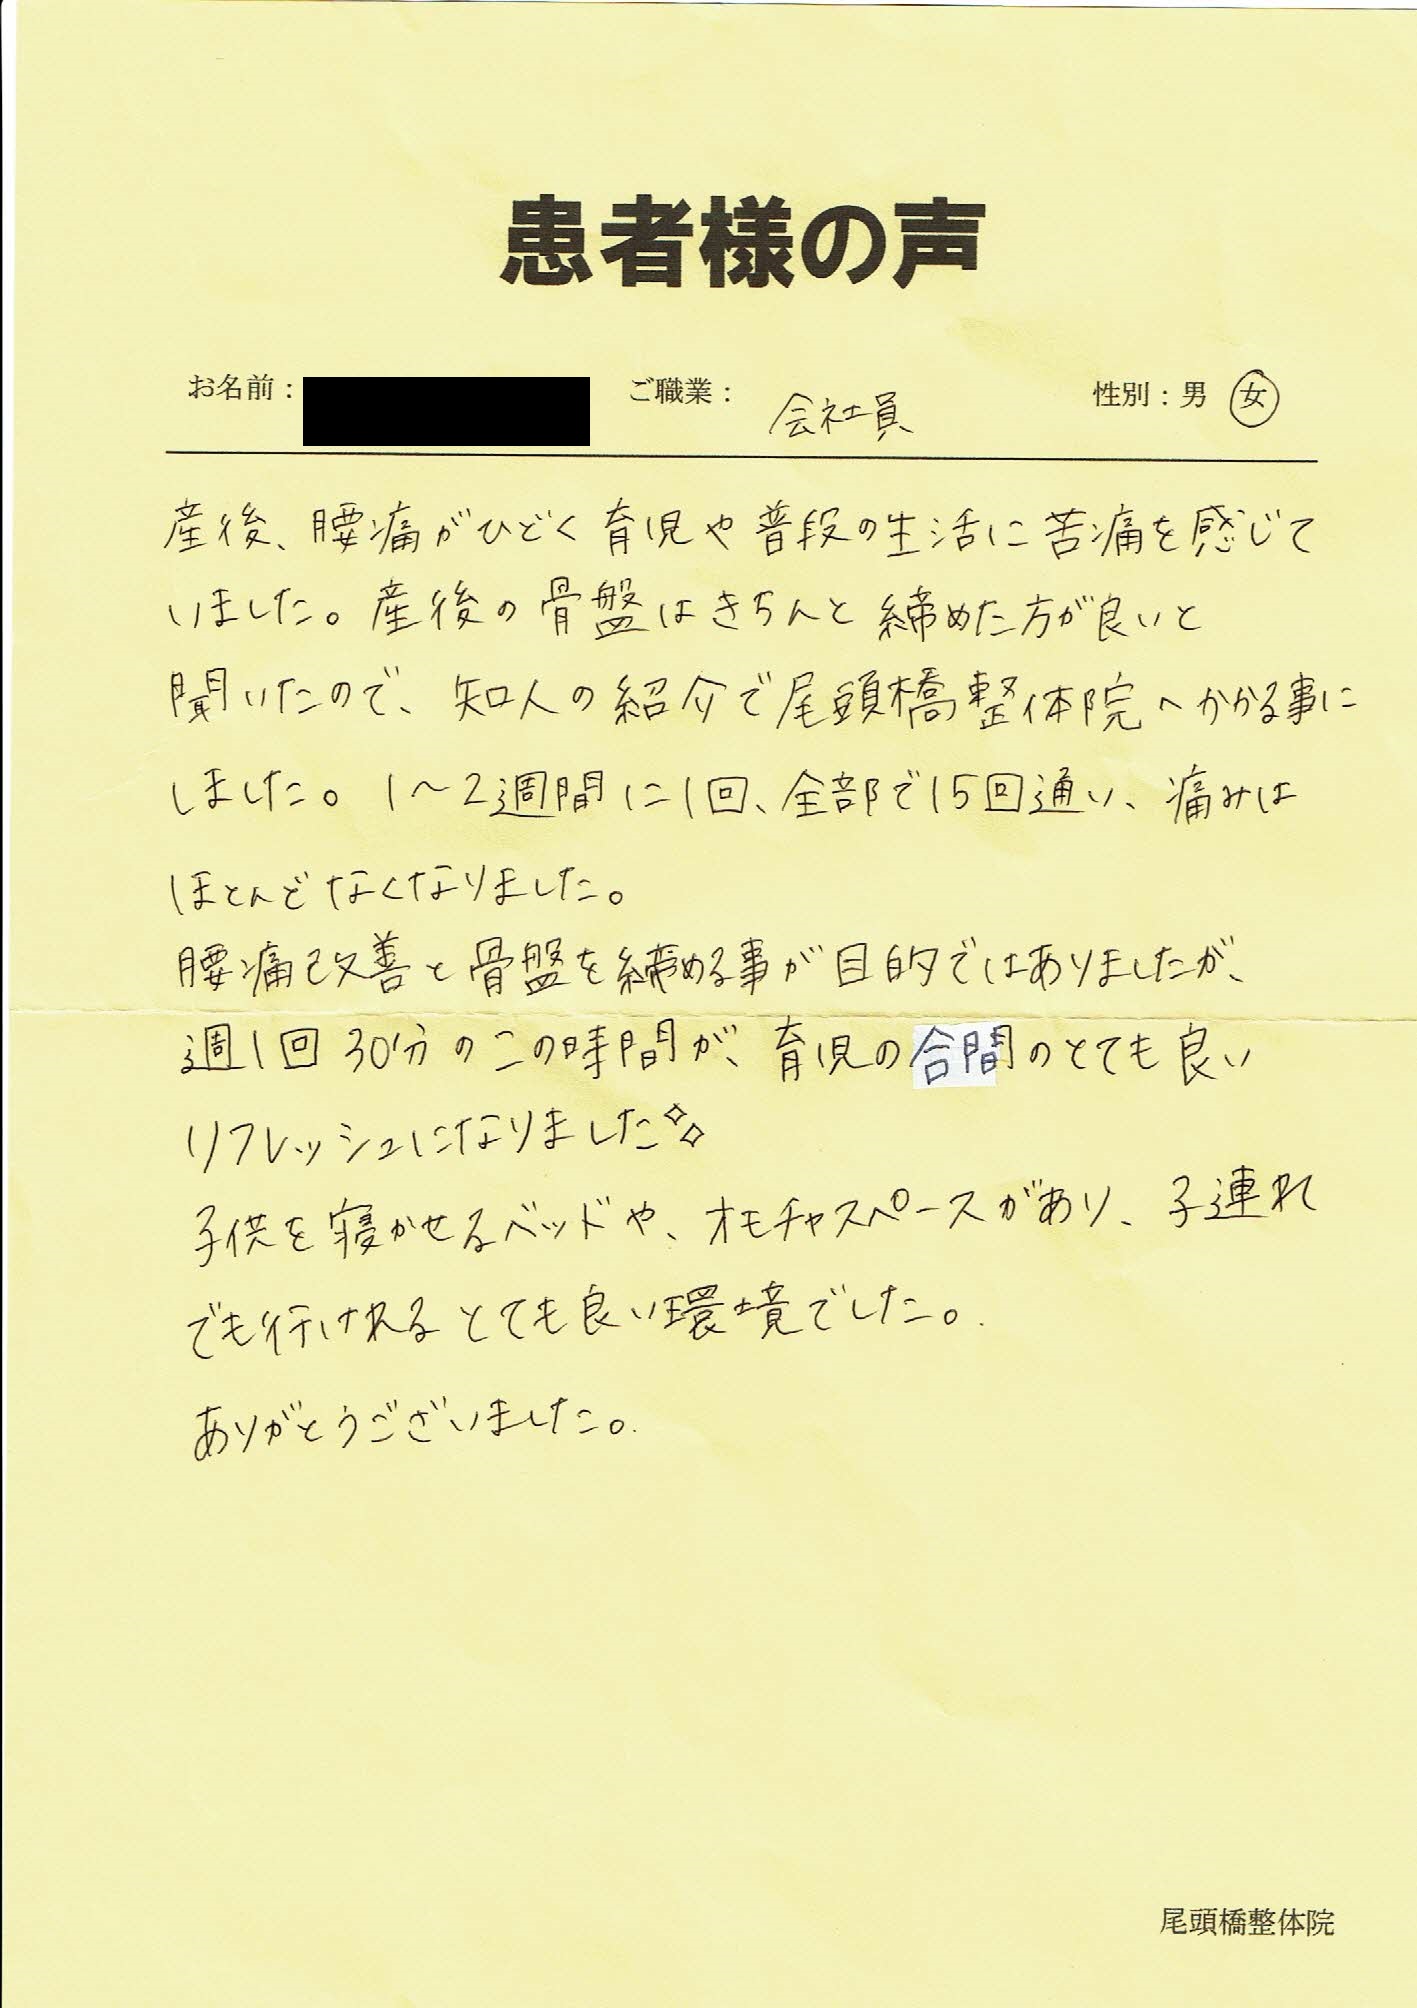 患者様の声
お名前： ご職業： 会社員 性別：男 女
産後、腰痛がひどく育児や普段の生活に苦痛を感じて
いました。産後の骨盤はきちんと締めた方が良いと
聞いたので、知人の紹介で尾頭橋整体院へかかる事に
しました。1〜2週間に1回、全部で15回通い、痛みは
ほとんどなくなりました。
腰痛改善と骨盤を締める事が目的ではありましたが、
週1回30分のこの時間が、育児の合間のとても良い
リフレッシュになりました✧✧
子供を寝かせるベッドや、オモチャスペースがあり、子連れ
でも行けれるとても良い環境でした。
ありがとうございました。
尾頭橋整体院